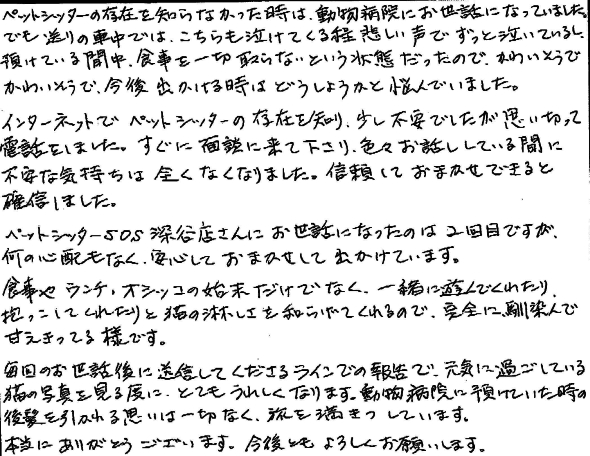 ペットシッターの存在を知らなかった時は、動物病院にお世話になっていました。
でも送りの車中では、こちらも泣けてくる程悲しい声でずっと泣いているし、
預けている間中、食事を一切取らないという状態だったので、かわいそうで
かわいそうで、今後出かける時はどうしようかと悩んでいました。
インターネットでペットシッターの存在を知り、少し不安でしたが思い切って
電話をしました。すぐに面談に来て下さり、色々お話ししている間に
不安な気持ちは全くなくなりました。信頼しておまかせできると
確信しました。
ペットシッターSOS深谷店さんにお世話になったのは2回目ですが、
何の心配もなく、安心しておまかせして出かけています。
食事やウンチ・オシッコの始末だけでなく、一緒に遊んでくれたり、
抱っこしてくれたりと猫の淋しさを和らげてくれるので、完全に馴染んで
甘えきってる様です。
毎回のお世話後に送信してくださるラインでの報告で、元気に過ごしている
猫の写真を見る度に、とてもうれしくなります。動物病院に預けていた時の
後髪を引かれる思いは一切なく、旅を満きつしています。
本当にありがとうございます。今後ともよろしくお願いします。